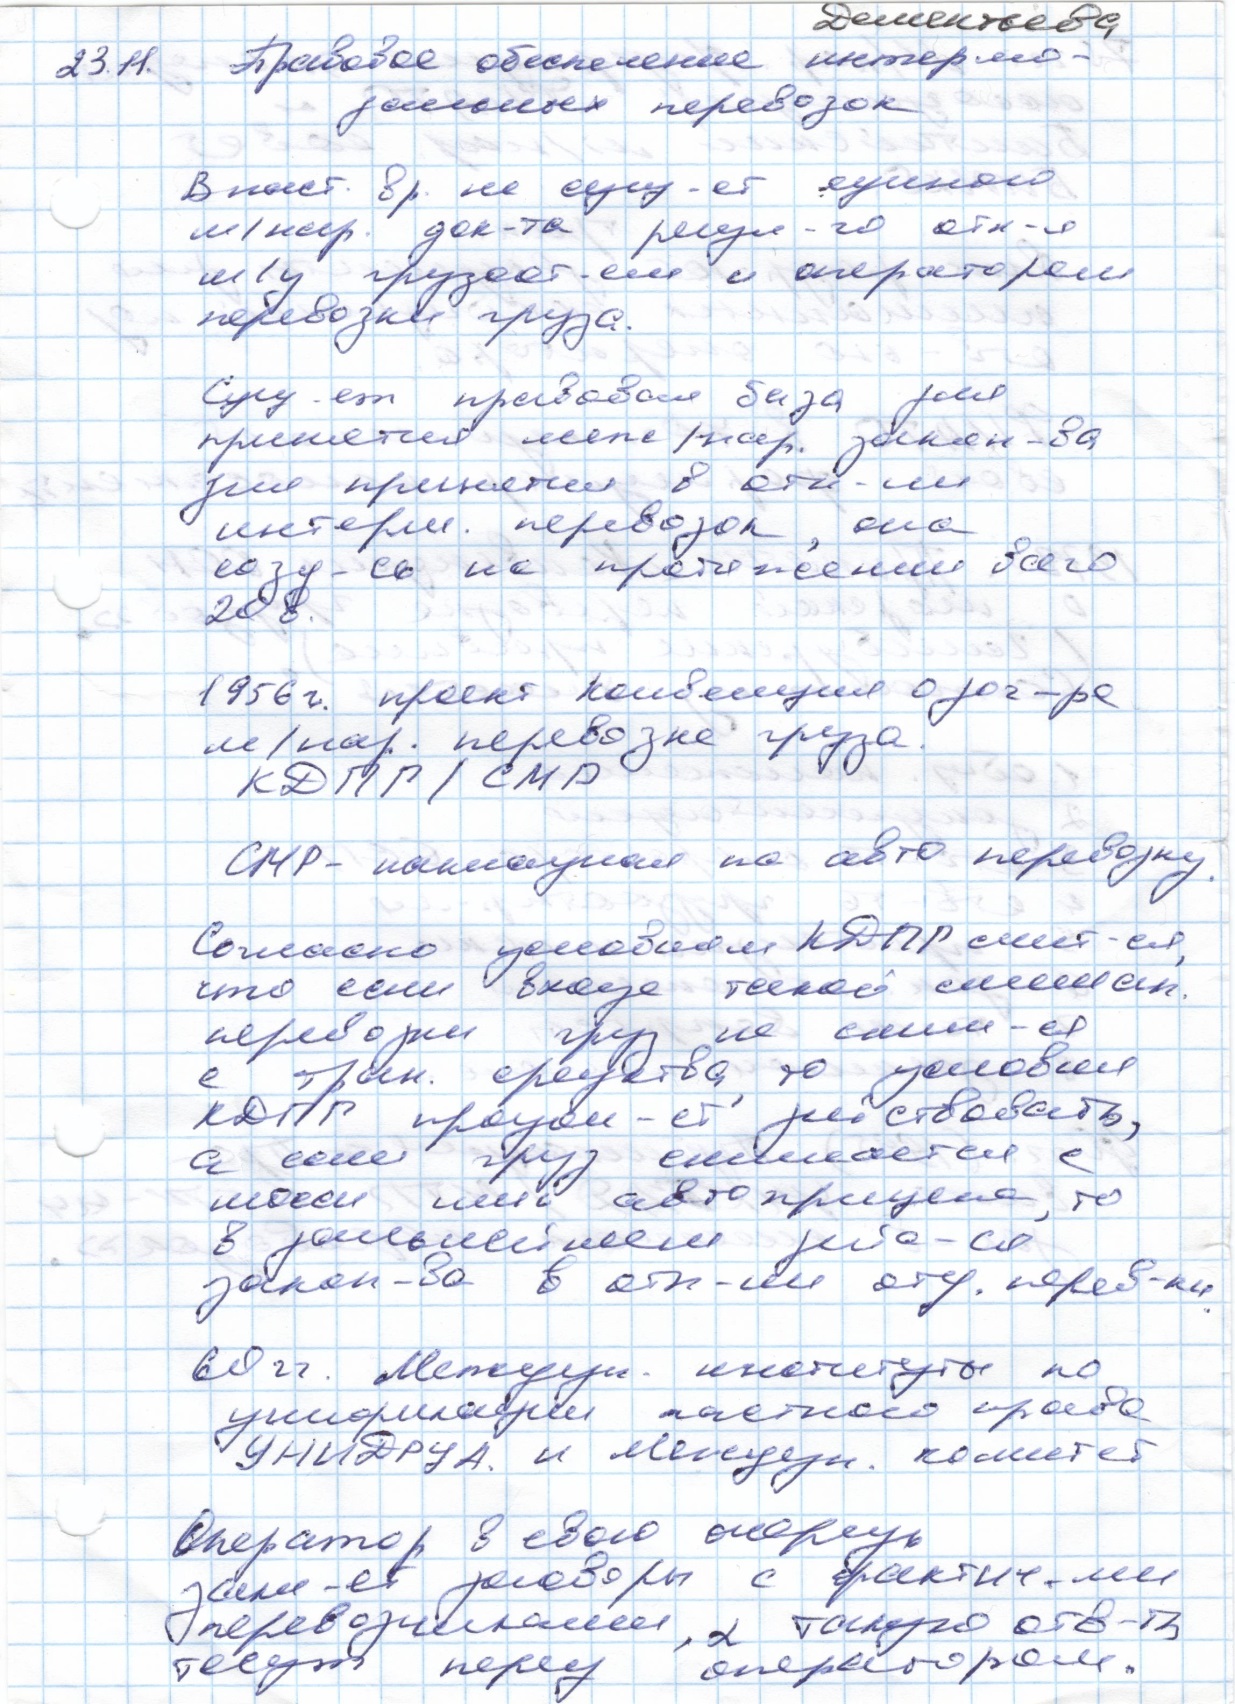 Дементьева
23.11. Правовое обеспечение интермо-
дальных перевозок
В наст. вр. не сущ-ет единого
м/нар. док-та регул-го отн-я
м/у грузоот-ми и оператором
перевозки груза.
Сущ-ет правовая база для
принятия меж/нар. закон-ва
для принятия в отн-ии
интерм. перевозок, она
созд-сь на протяжении всего
20 в.
1956 г. проект Конвенция о дог-ре
м/нар. перевозке груза.
КДПГ / СМР
СМР - накладная по авто перевозку.
Согласно условиям КДПГ счит-ся,
что если входе такой смешан.
перевозки груз не сним-ся
с тран. средства, то условия
КДПГ продол-ет действовать,
а если груз снимается с
шасси или автоприцепа, то
в дальнейшем
закон-ва в отн-ии отд. перев-ки.
60 гг. Междун. институты по
унификации частного права
УНИДРУА. и Междун. комитет
Оператор в свою очередь
закл-ет договоры с фактич-ми
перевозчиками, а такую отв-ть
несут перед оператором.